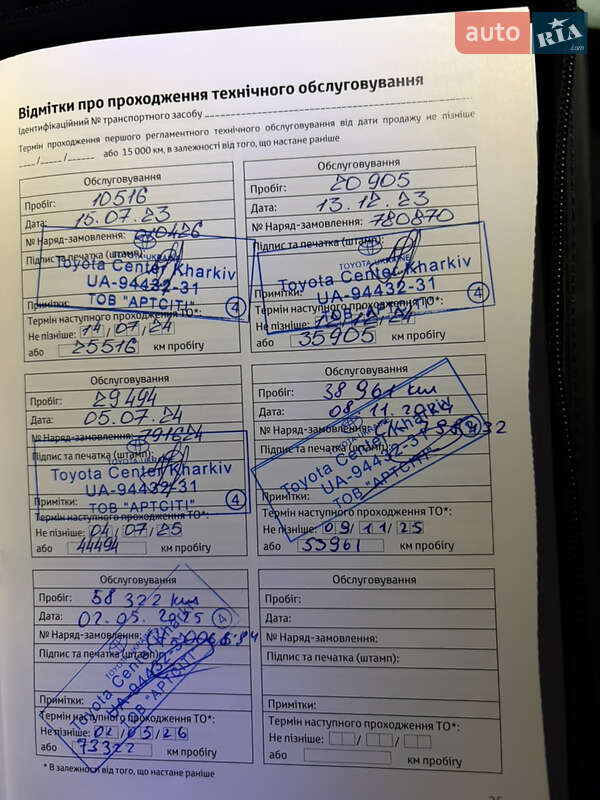 auto RIA.com
Відмітки про проходження технічного обслуговування
Ідентифікаційний № транспортного засобу
Термін проходження першого регламентного технічного обслуговування від дати продажу не пізніше
___/____/____ або 15 000 км, в залежності від того, що настане раніше
Обслуговування
Пробіг: 10516
Дата: 15.07.23
№ Наряд-замовлення:
Підпис та печатка (штамп):
TOYOTA-UKRAINE
Toyota Center Kharkiv
UA-94432-31
ТОВ "АРТСІТІ" 4
Примітки:
Термін наступного проходження ТО*:
Не пізніше: 14/07/24
або 25516 км пробігу
Обслуговування
Пробіг: 20905
Дата: 13.12.23
№ Наряд-замовлення: 780870
Підпис та печатка (штамп):
TOYOTA-UKRAINE
Toyota Center Kharkiv
UA-94432-31
ТОВ "АРТСІТІ" 4
Примітки:
Термін наступного проходження ТО*:
Не пізніше: 12/12/24
або 35905 км пробігу
Обслуговування
Пробіг: 29494
Дата: 05.07.24
№ Наряд-замовлення: 791624
Підпис та печатка (штамп):
Toyota Center Kharkiv
UA-94432-31
ТОВ "АРТСІТІ" 4
Примітки:
Термін наступного проходження ТО*:
Не пізніше: 04/07/25
або 44494 км пробігу
Обслуговування
Пробіг: 38961 км
Дата: 08.11.2024
№ Наряд-замовлення:
Підпис та печатка (штамп):
Toyota Center Kharkiv
UA-94432-31
ТОВ "АРТСІТІ" 4
Примітки:
Термін наступного проходження ТО*:
Не пізніше: 09/11/25
або 53961 км пробігу
Обслуговування
Пробіг: 58322 км
Дата: 02.05.2025
№ Наряд-замовлення:
Підпис та печатка (штамп):
Toyota Center Kharkiv
UA-94432-31
ТОВ "АРТСІТІ" 4
Примітки:
Термін наступного проходження ТО*:
Не пізніше: 02/05/26
або 73322 км пробігу
Обслуговування
Пробіг:
Дата:
№ Наряд-замовлення:
Підпис та печатка (штамп):
Примітки:
Термін наступного проходження ТО*:
Не пізніше: / /
або км пробігу
* В залежності від того, що настане раніше